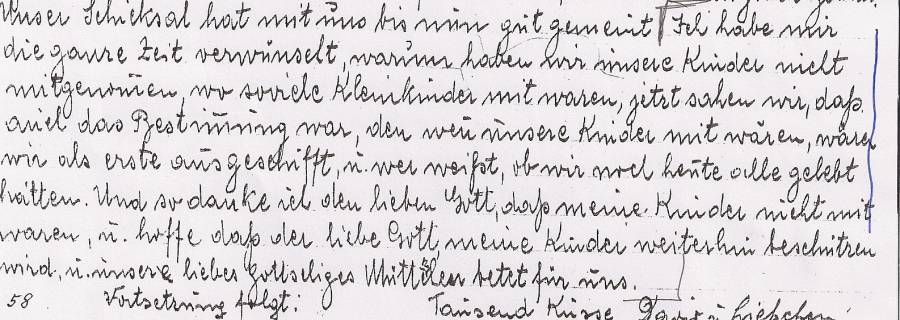 Unser Schicksal hat mit uns bis nun gut gemeint Ich habe mir
die ganze Zeit verwünscht, warum haben wir unsere Kinder nicht
mitgenomen, wo soviele Kleinkinder mit waren, jetzt sahen wir, daß
auch das Bestimung war, den wen unsere Kinder mit wären, wären
wir als erste ausgeschifft, u. wer weißt, ob wir noch heute alle gelebt
hätten. Und so danke ich den lieben Gott, daß meine Kinder nicht mit
waren, u. hoffe daß der liebe Gott meine Kinder weiterhin beschützen
wird, u. unsere liebes Gottseliges betet für uns.
58 Fortsetzung folgt: Tausend Küsse